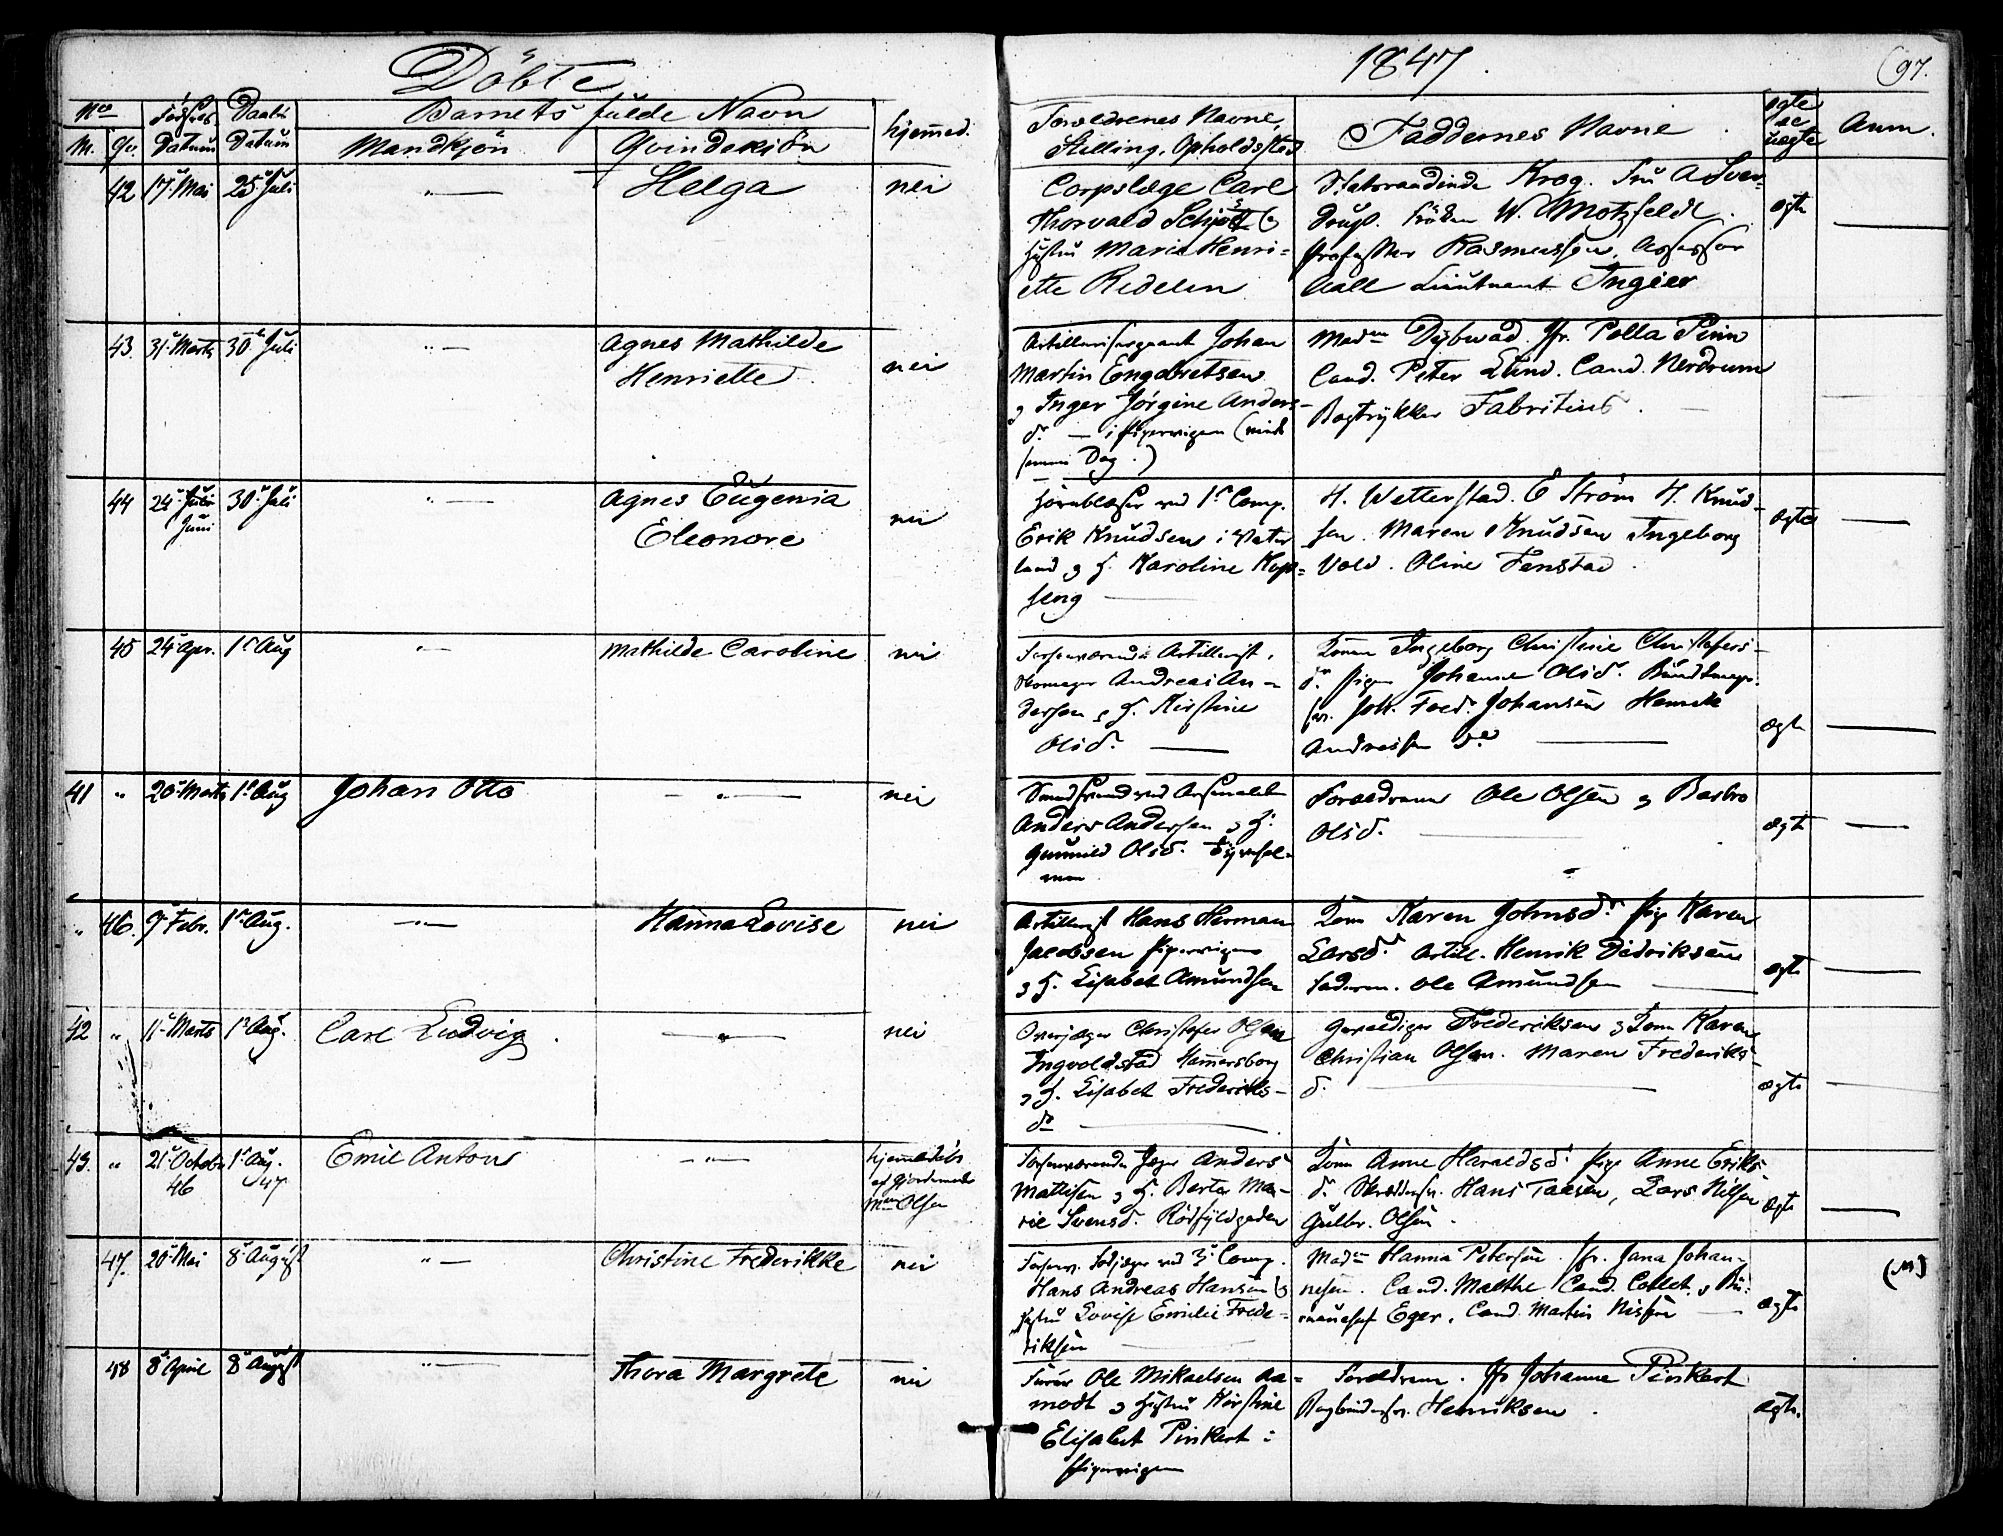 Döbte
1847.
97.
No
Födsels
Daabs
Barnets fulde Navn
hjemmed.
Forældrenes Navne,
Faddernes Navne
ægte
uægte
Anm.
M. Qv. Datum Datum Mandkjön Qvindekjön
Stilling, Opholdssted
42 17 Mai 25 Juli " — Helga nei
Corpslæge Carl
Thorvald Schjøtt og
Hustru Marie Henri-
ette Redelen
Statsraadinde Krog. Fru A Sver-
drup. Fröken W. Motzfeldt.
Professor Rasmussen, Assessor
Aall Lieutnant Ingier
ægte —
43. 31 Marts 30 Juli " — Agnes Mathilde
Henriette nei
Artillerisergeant Johan
Martin Engebretsen
og Inger Jörgine Anders-
dr. — i Pipervigen (
samme Dag.)
Madm Dybwad. Jfr. Polla
Cand. Peter Lund. Cand. Nerdrum
Bogtrykker Fabritius. —
44 24 Juli 30 Juli " — Agnes Eugenia
Juni
Eleonore nei
Hornblæser ved 1r Comp.
Erik Knudsen i Vater
land og H. Karoline Kop-
seng —
H. Wetterstad. E Ström H. Knud-
sen. Maren Knudsen Ingeborg
Vold. Oline Fenstad.
ægte —
45 24 Apr. 1r Aug " — Mathilde Caroline nei
Forhenværende Artillerist,
Skomager Andreas An-
dersen og H. Kirstine
Olsd. —
Konen Ingeborg Christine Christofers-
dr. Pigen Johanne Olsd.
Joh. Fred. Johansen Henrik
Andreasen —
ægte —
41 " 20 Marts 1r Aug Johan Otto — " — nei
ved Arsenalet
Anders Andersen og H.
Gunnild Olsd.
Forældrene Ole Olsen og Barbro
Olsd. —
ægte —
" 46. 9 Febr. 1r Aug. — " — Hanna Lovise nei
Artillerist Hans Herman
Jacobsen Pipervigen
og H. Lisabet Amundsen
Kone Karen Johnsdr. Pige Karen
Larsdr. Artill. Henrik Didriksen
Faderen. Ole Amundsen —
ægte —
42 " 11 Marts 1r Aug. Carl Ludvig. — " — nei
Overjæger Christofer Olsen
Ingvoldstad Hamersborg
og H. Lisabet Frederiks-
dr —
Gevaldiger Frederiksen og Kone Karen
Christian Olsen. Maren Frederiks-
d. —
ægte —
43. " 21 Octobr 1r Aug. Emil Anton — " — hjemmedöbt
46 47.
af Gjordemoder
Mm Olsen
Forhenværende Jæger Anders
Mathisen og H. Berte Ma-
rie Svensd. Rödfyldgaden
Kone Anne Haraldsd. Pige Anne Eriks
d. Skræddersv. Hans Taasen, Lars Nilsen
Gulbr. Olsen.
ægte —
47. 20 Mai 8 August " — Christine Frederikke nei
Forhenv. Fodjæger ved 3 Comp.
Hans Andreas Hansen og
Hustru Lovise Emilie Frede-
riksen
Madm Hanna Petersen. Jfr. Jana Johan-
nesen. Cand. Malthe Cand. Collet. og Bü-
reauchef Eger. Cand. Martin Nissen —
ægte
48 8 April 8 August " — Thora Margrete nei
Furer Ole Mikaelsen Aa-
modt og Hustru Kirstine
Elisabet Pinkert i
Pipervigen
Forældrene. Jfr Johanne Pinkert
Bogbindersv. Henriksen.
ægte.